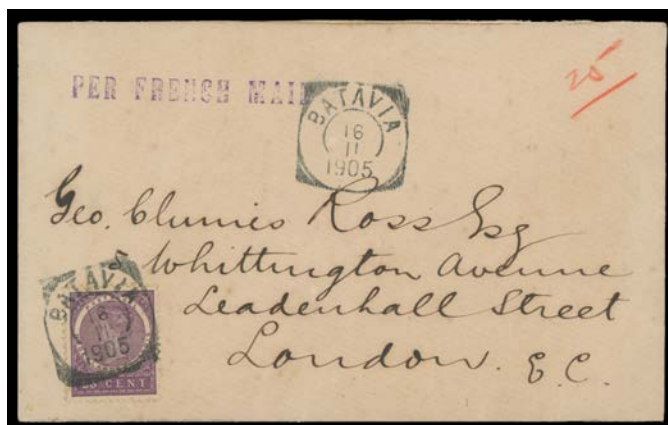 PER FRENCH MAIL
BATAVIA
16
11
1905
25
Geo. Clunies Ross Esq
5
Whittington Avenue
Leadenhall Street
London. E.C.
BATAVIA
1905
CENT